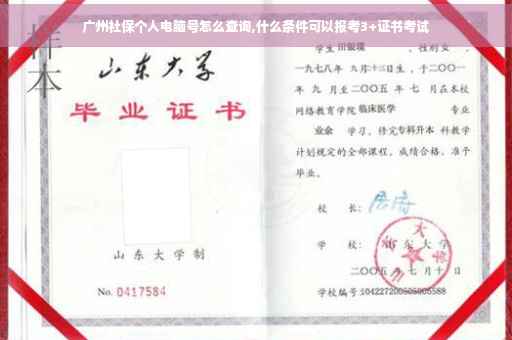 广州社保个人电脑号怎么查询,什么条件可以报考3+证书考试
样本
山东大学
毕业证书
山东大学制
No. 0417584
学生 田敬璞 ,性别女,
一九七八年 九月十三日生,于二〇〇一
年 九 月至二〇〇五 年 七 月在本校
网络教育学院 临床医学 专业
业余 学习,修完 专科升本 科教学
计划规定的全部课程,成绩合格,准予
毕业。
校 长:
学 校: 山东大学
二〇〇五年七月十日
学校编号:104227200505005588